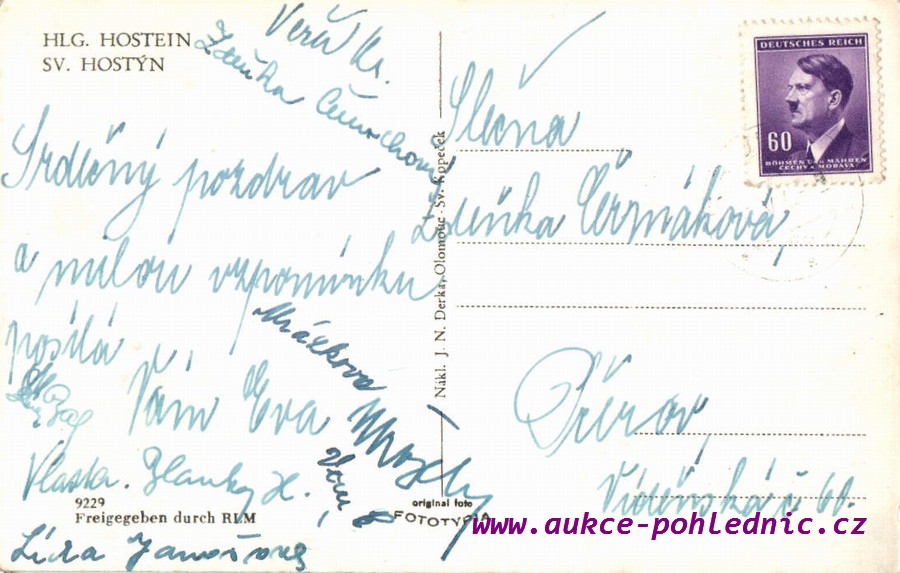 HLG. HOSTEIN
SV. HOSTÝN
Věra Kr.
Zdeňka
Srdečný pozdrav
a milou vzpomínku
posílá
Vám Eva
Mráčkova
Vlasta. Blanka H.
Lída Janošova
9229
Freigegeben durch RLM
Nákl. J. N. Derka, Olomouc - Sv. Kopeček
original foto
FOTOTYPIA
DEUTSCHES REICH
60
BÖHMEN UND MÄHREN
ČECHY A MORAVA
Slečna
Zdeňka Čermáková,
Přerov,
Vídeňská č 60.
www.aukce-pohlednic.cz